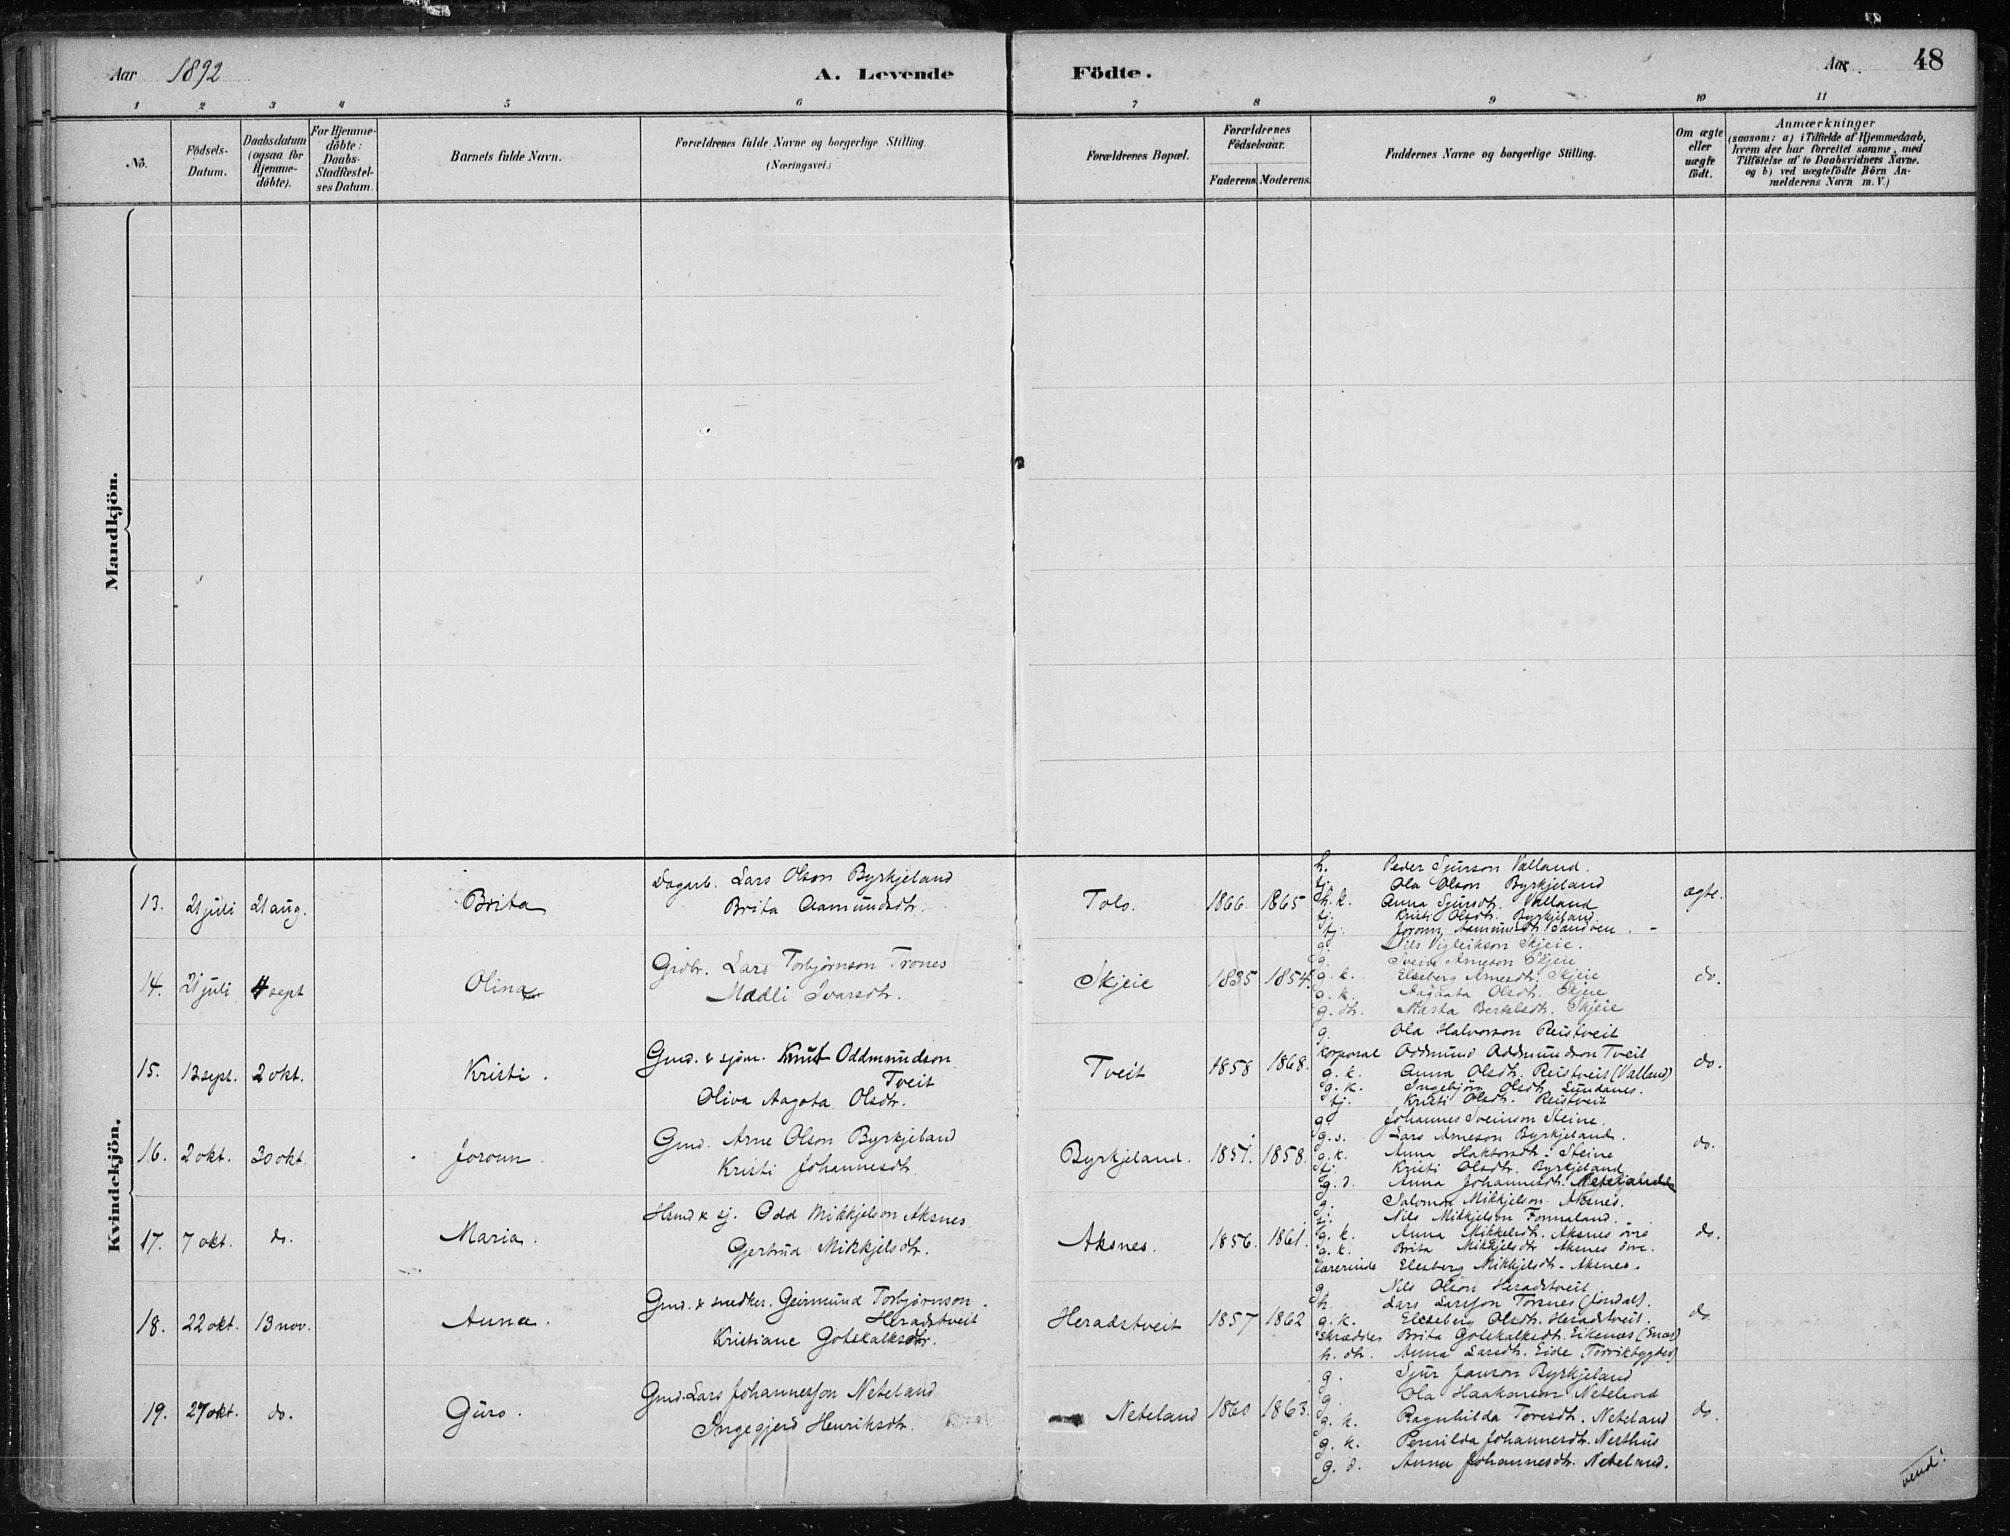 Aar 1892 A. Levende Födte. Aar 48
1 2 3 4 5 6 7 8 9 10 11
No.
Födsels-Datum.
Daabsdatum (ogsaa for Hjemme-döbte).
For Hjemme-döbte: Daabs-Stadfestel-ses Datum.
Barnets fulde Navn.
Forældrenes fulde Navne og borgerlige Stilling.
(Næringsvei.)
Forældrenes Bopæl.
Forældrenes Födselsaar.
Faderens. Moderens.
Faddernes Navne og borgerlige Stilling.
Om ægte eller uægte födt.
Anmærkninger
(saasom: a) i Tilfælde af Hjemmedaab,
hvem der har forrettet samme, med
Tilföielse af to Daabsvidners Navne.
og b) ved uægtefödte Börn An-
melderens Navn m. V.)
Mandkjön.
Kvindekjön.
13. 21 juli 21 aug. Brita
Dagarb. Lars Olson Byrkjeland
Brita Aamundsdtr.
Tolo. 1866. 1865
h. Peder Sjurson Valland.
tj. Ola Olson Byrkjeland
h. k. Anna Sjursdtr. Valland
tj. Kristi Olsdtr. Byrkjeland.
tj. Jorunn Aamundsdtr. Sandven.
ægte.
14. 21 juli 4 sept Olina
Grdbr. Lars Torbjørnson Trones
Madli Ivarsdtr.
Skjeie 1835 1854.
g. Nils Vigleikson Skjeie.
g. Svein Arneson Skjeie
g. k. Elseberg Arnesdtr. Skjeie
g. k. Aagaata Olsdtr. Skjeie
g. dtr. Marta Bertelsdtr. Skjeie
do.
15. 12 sept. 2 okt. Kristi.
Gmd. & sjøm. Knut Oddmundson
Tveit
Oliva Aagota Olsdtr.
Tveit 1858 1868.
g. Ola Halvorson Reistveit
Korporal Oddmund Oddmundson Tveit
g. k. Anna Olsdtr. Reistveit (Valland)
g. k. Ingebjørg Olsdtr. Lundanes.
tj. Kristi Olsdtr. Reistveit
do.
16. 2 okt. 30 okt. Jorunn
Gmd. Arne Olson Byrkjeland
Kristi Johannesdtr.
Byrkjeland. 1851. 1858.
g. Johannes Sveinson Steine.
g. s. Lars Arneson Byrkjeland.
g. k. Anna Haktorsdtr. Steine
tj. Kristi Olsdtr. Byrkjeland
g. d. Anna Johannesdtr. Neteland
do.
17. 7 okt. do. Maria.
Hsmd & sj. Odd Mikkjelson Aksnes
Gjertrud Mikkjelsdtr.
Aksnes. 1856. 1861.
g. Salomon Mikkjelson Aksnes.
g. Nils Mikkjelson Fonnaland.
g. k. Anna Mikkelsdtr. Aksnes øvre
g. k. Brita Mikkjelsdtr Aksnes øvre.
Lærerinde Elseberg Mikkjelsdtr. Aksnes.
do.
18. 22 okt. 13 nov. Anna.
Gmd. & snedker. Geirmund Torbjørnson.
Heradstveit
Kristiane Gotskalksdtr.
Heradstveit 1857 1862
g. Nils Olson Heradstveit
h. Lars Larsson Torsnes (Jondal).
g. k. Elseberg Olsdtr. Heradstveit.
Skrædder Brita Gotskalksdtr. Eikenæs (Enæs)
h. dtr. Anna Larsdtr. Eide (Torvikbygden)
do
19. 27 okt. do. Guro.
Gmd. Lars Johannesson Neteland
Ingegjerd Henriksdtr.
Neteland 1860 1863.
g. Sjur Janson Byrkjeland
g. Ola Haakonson Neteland
g. k. Ragnhilda Toresdtr. Neteland
g. k. Pernilda Johannesdtr. Nerthus
g. d. Anna Johannesdtr. Neteland.
do.
vend!